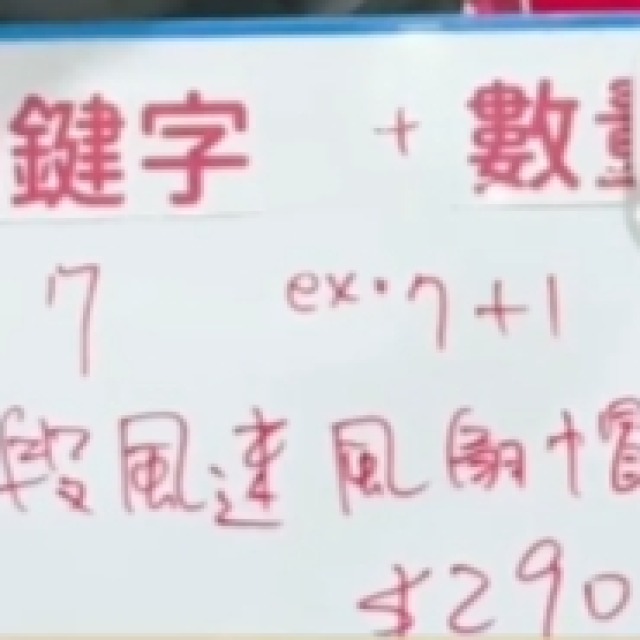 鍵字 + 數量
7 ex. 7+1
段風速風扇帽
$290